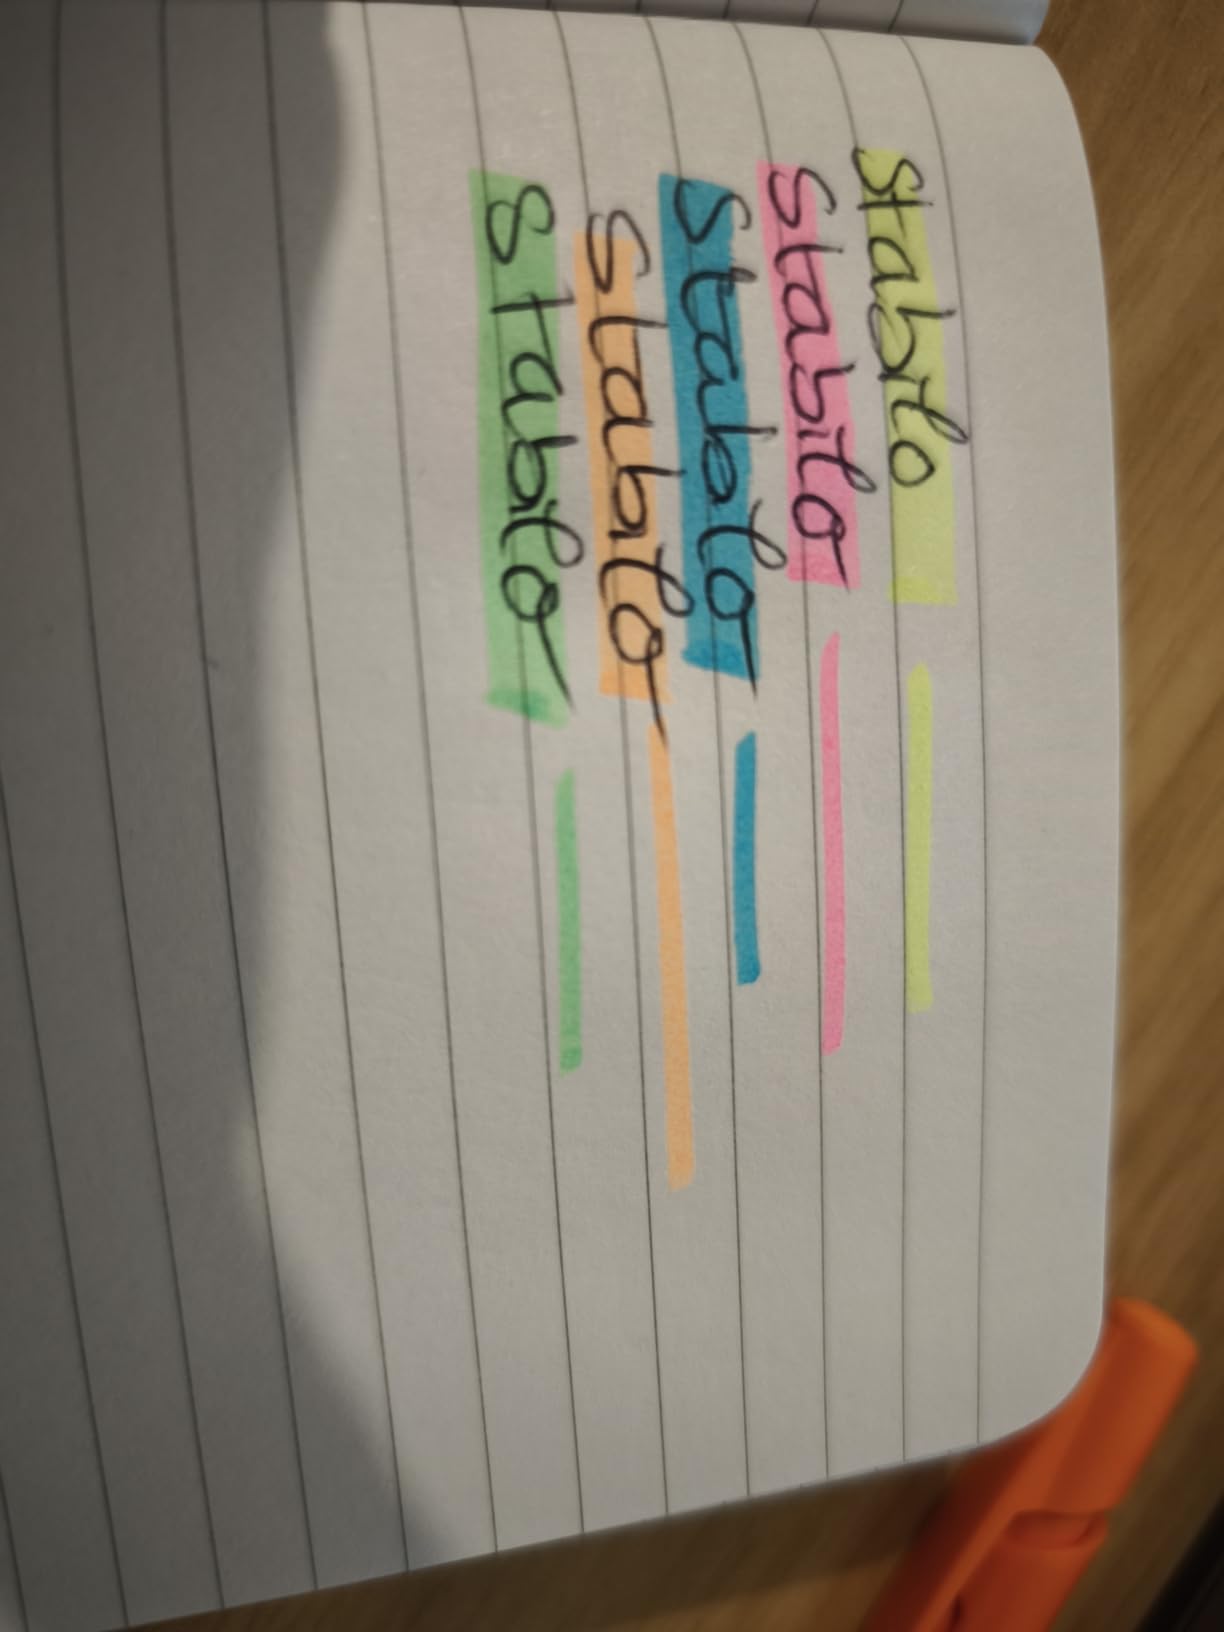 Stabilo
Stabilo
Stabilo
Stabilo
Stabilo